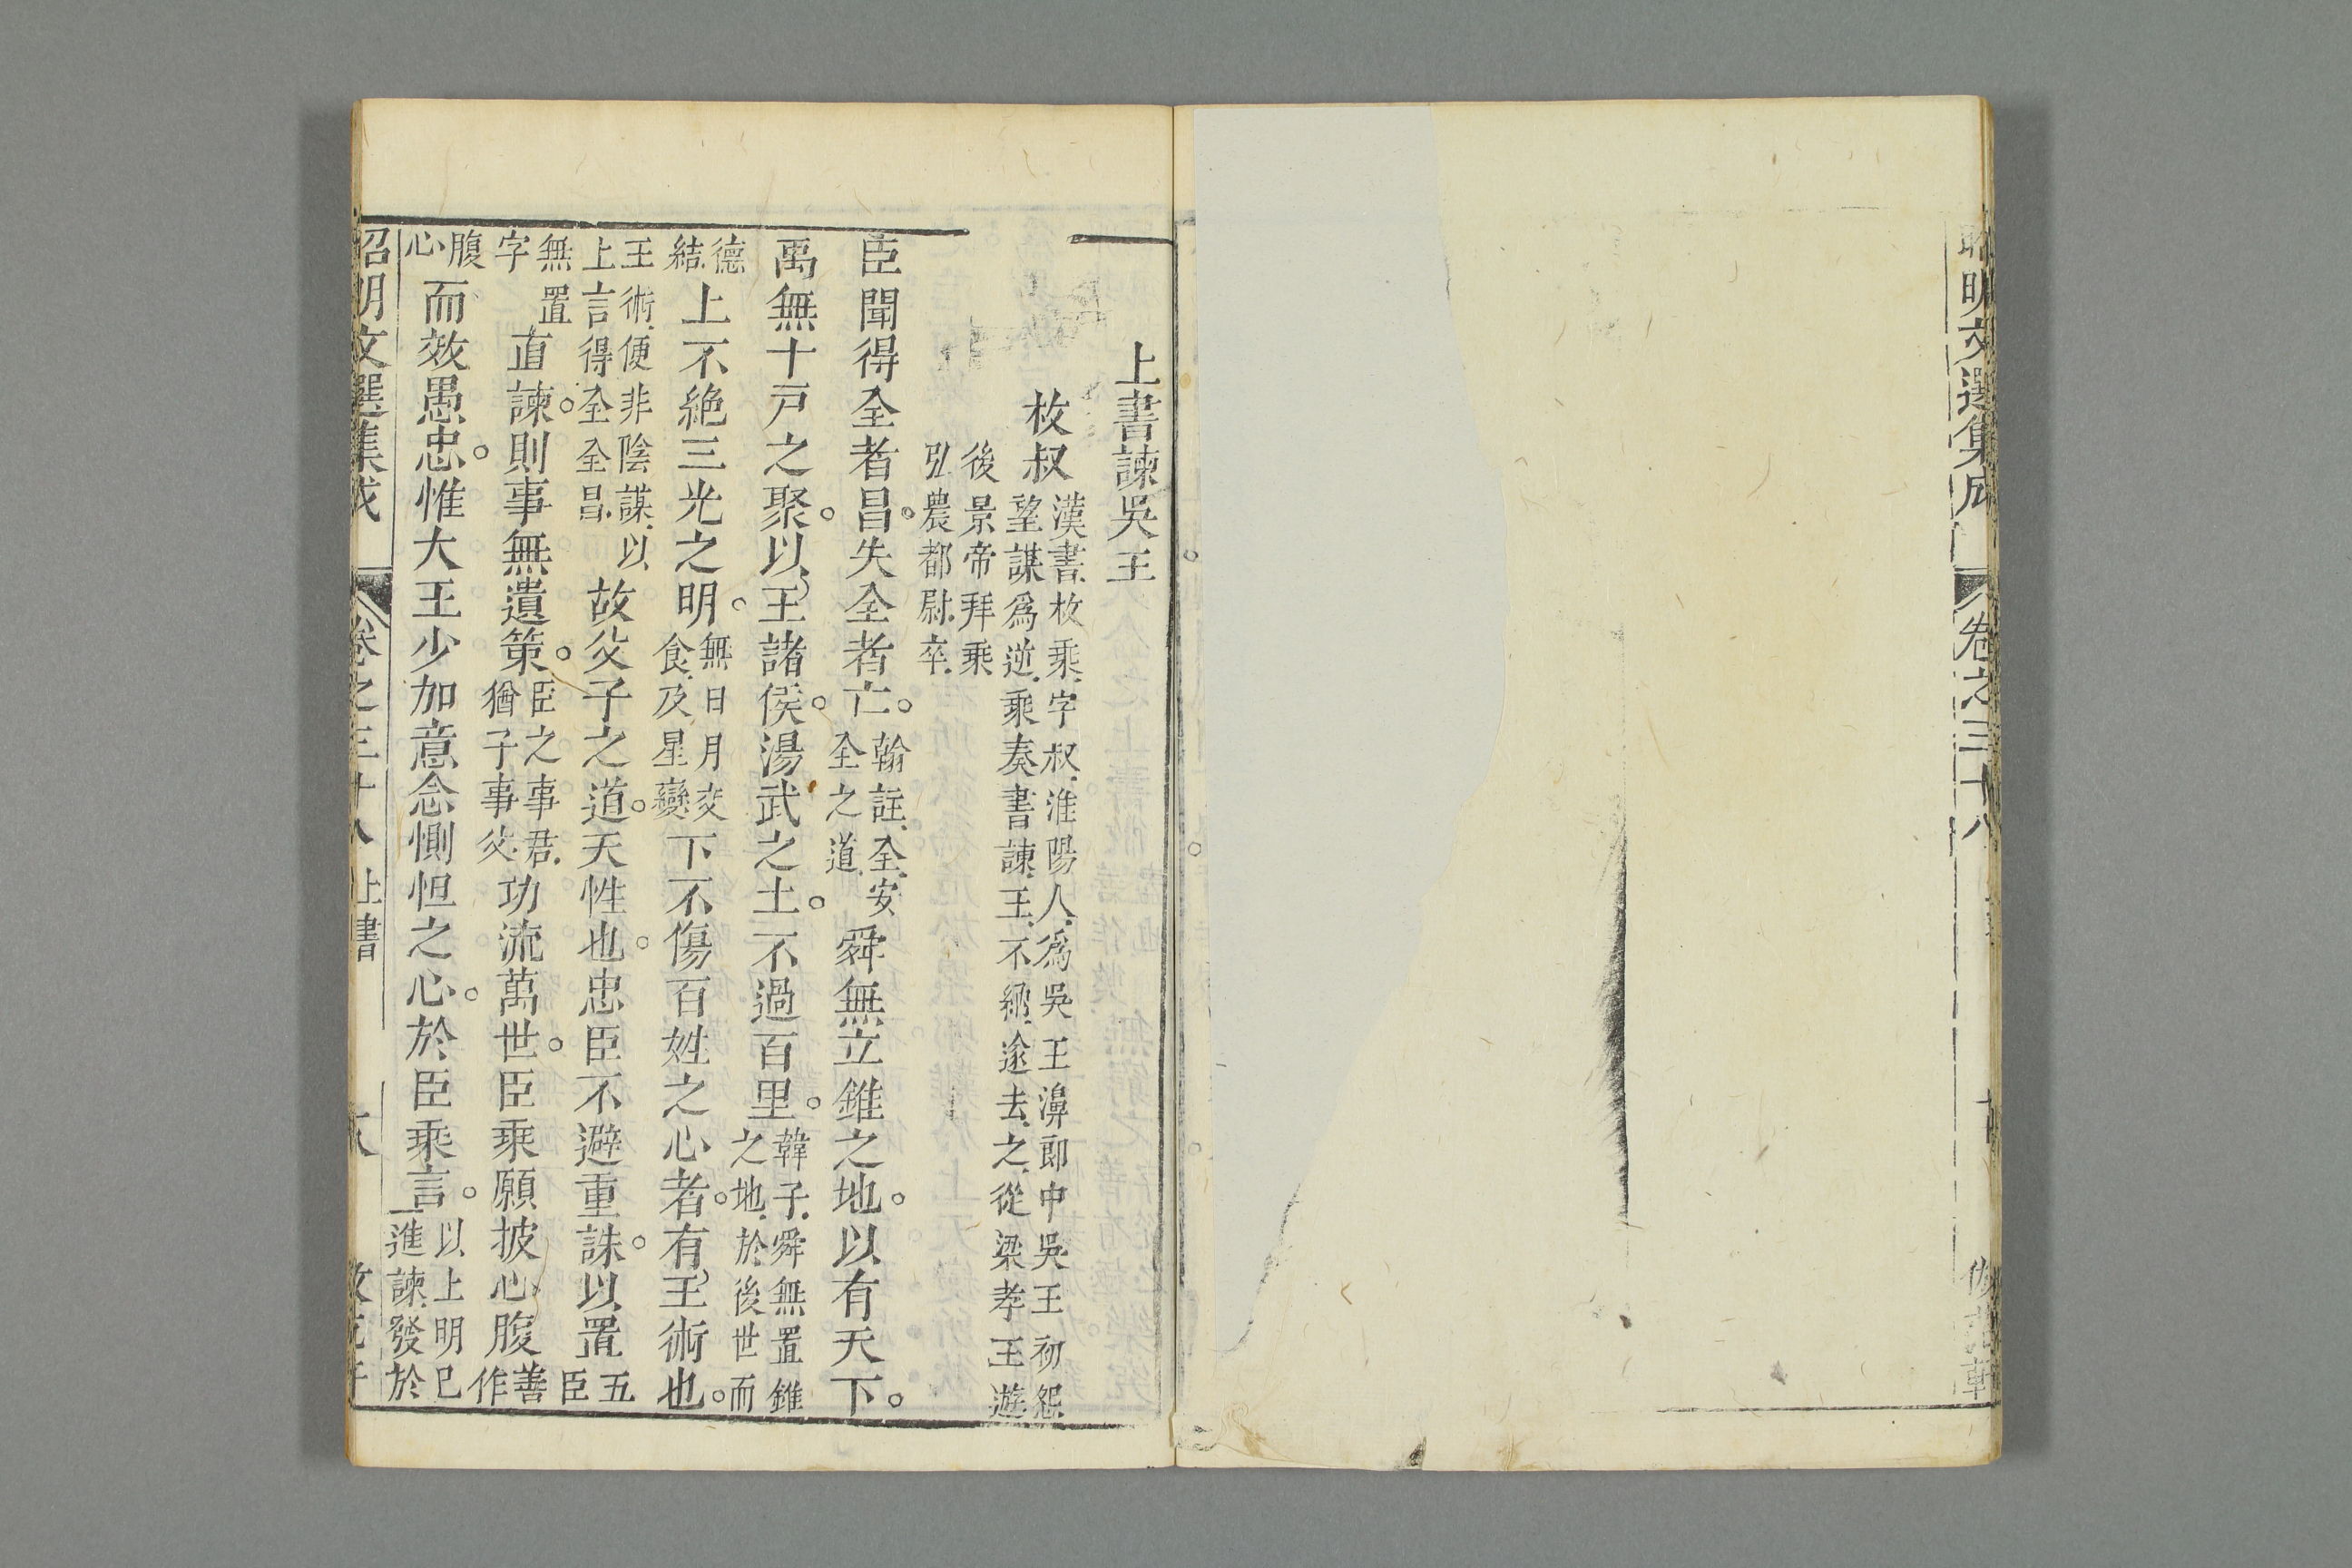 昭明文選集成
卷之三十八
上書諫吳王
枚叔
漢書枚乘字叔淮陽人為吳王濞郎中吳王初怨
望謀為逆乘奏書諫王不納遂去之從梁孝王遊
後景帝拜乘
弘農都尉卒
臣聞得全者昌失全者亡
翰註全安
全之道
舜無立錐之地以有天下
禹無十戸之聚以王諸侯湯武之土不過百里
韓子舜無置錐
之地於後世而
德
結
上不絶三光之明
無日月交
食及星變
下不傷百姓之心者有王術也
王術便非陰謀以
上言得全全昌
故父子之道天性也忠臣不避重誅以置
五
臣
無置
字
直諫則事無遺策
臣之事君
猶子事父
功流萬世臣乘願披心腹
善
作
腹
心
而效愚忠惟大王少加意念惻怛之心於臣乘言
以上明已
進諫發於
昭明文選集成
卷之三十八
上書